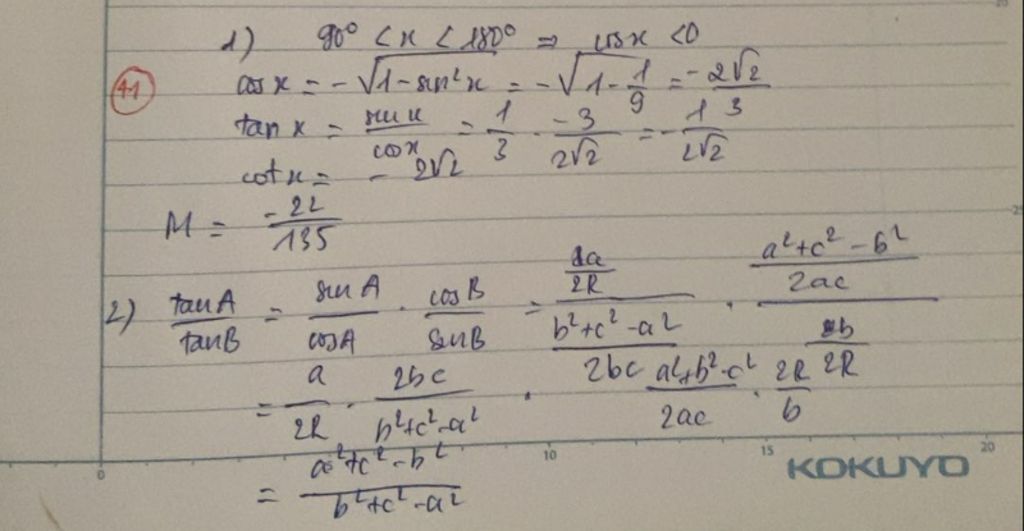 1) 90° < x < 180° ⇒ cosx < 0
41
cosx = -√1-sin²x = -√1-1/9 = -2√2/3
tanx = sinx/cosx = 1/3 . -3/2√2 = -1/2√2
cotx = -2√2
M = -22/135
2) tanA/tanB = sinA/cosA . cosB/sinB = (a/2R)/((b²+c²-a²)/2bc) . ((a²+c²-b²)/2ac)/(b/2R)
= a/2R . 2bc/(b²+c²-a²) . (a²+b²-c²)/2ac . 2R/b
= (a²+c²-b²)/(b²+c²-a²)
0 10 15 20
25
20
KOKUYO